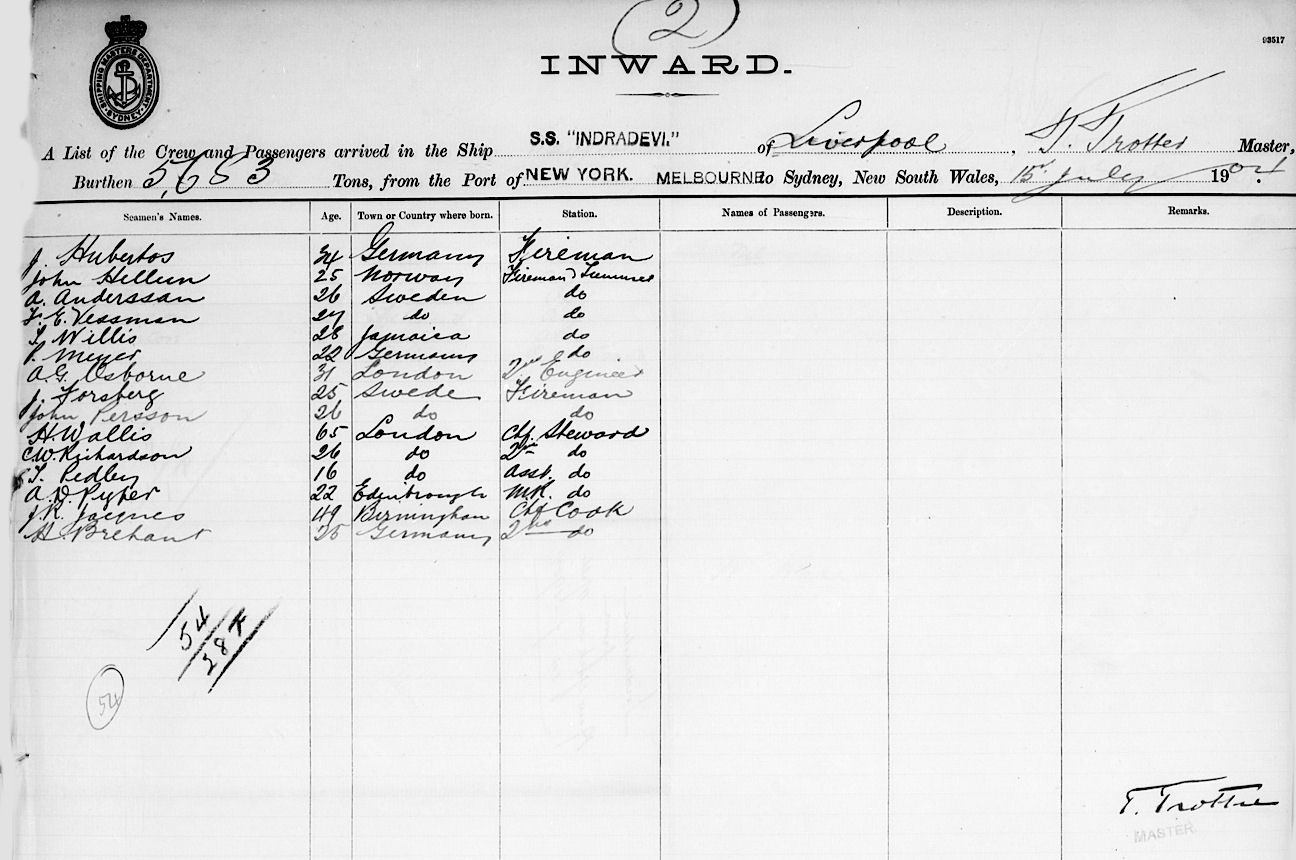 (2)
93517
SHIPPING MASTERS DEPARTMENT SYDNEY
INWARD.
A List of the Crew and Passengers arrived in the Ship S.S. "INDRADEVI." of Liverpool, T. Trotter Master,
Burthen 3,683 Tons, from the Port of NEW YORK. MELBOURNE to Sydney, New South Wales, 15 July 1904.
Seamen's Names. Age. Town or Country where born. Station. Names of Passengers. Description. Remarks.
J. Hubertos 34 Germany Fireman
John Hellum 25 Norway Fireman & Trimmer
A. Anderssan 26 Sweden do
F. E. Vessman 27 do do
T. Willis 28 Jamaica do
P. Meyer 22 Germany do
A.G. Osborne 31 London 2nd Engineer
J. Forsberg 25 Swede Fireman
John Persson 26 do do
H. Wallis 65 London Chf. Steward
C.W. Richardson 26 do 2nd do
T. Pedley 16 do Asst. do
A.D. Pyper 22 Edinbrough MR. do
J.R. Jacques 49 Birmingham Chf Cook
H. Brehant 25 Germany 2nd do
54
28
54
T. Trotter
MASTER